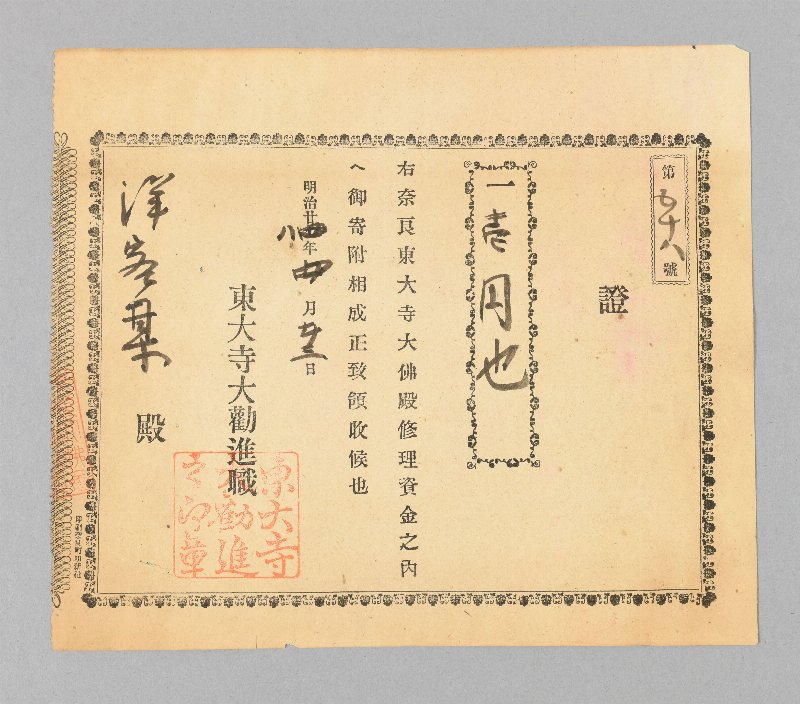 第五十八號
證
一壱円也
右奈良東大寺大佛殿修理資金之内
へ御寄附相成正致領收候也
明治廿四年四月廿三日
東大寺大勸進職
東大寺
大勧進
之印章
洋客某殿